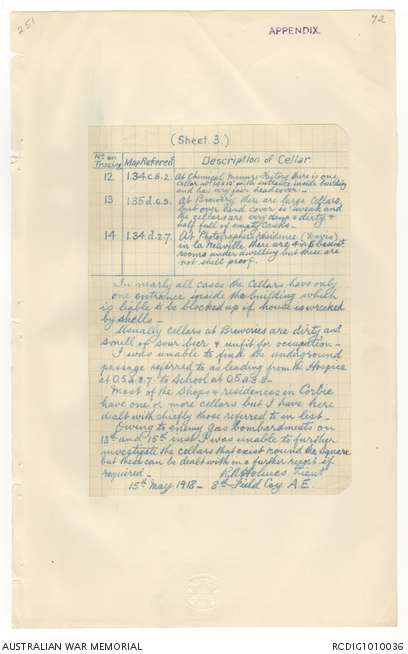 251
APPENDIX.
72
(Sheet 3.)
No on Tracing Map Referenct Description of Cellar
12 I.34.c.8.2. At Chemical Manure Factory there is one
cellar entrance inside building
and has very poor head cover -
13 I.35.d.0.9. At Brewery there are large Cellars,
but over head cover is weak and
the cellars are very damp & dirty &
half full of empty casks.
14 I.34.d.2.7. At Photographer's residence
in La Neuville there are 4 in basement
rooms under dwelling but these are
not shell proof.
In nearly all cases the Cellars have only
one entrance inside the building which
is liable to be blocked up if house is wrecked
by shells -
Usually cellars at Breweries are dirty and
smell of sour beer & unfit for occupation -
I was unable to find the underground
passage referred to as leading from the Hospice
at O.5.a.2.7 to School at O.5.a.3.8 -
Most of the Shops & residences in Corbie
have one or more cellars but I have here
dealt with chiefly those referred to in list -
Owing to enemy gas bombardments on
13th and 15th inst I was unable to further
investigate the cellars that exist round the Square
but these can be dealt with in a further report if
required - R.A. Holmes Lieut
15th May 1918 - 8th Field Coy A.E.
AUSTRALIAN WAR MEMORIAL
RCDIG1010036